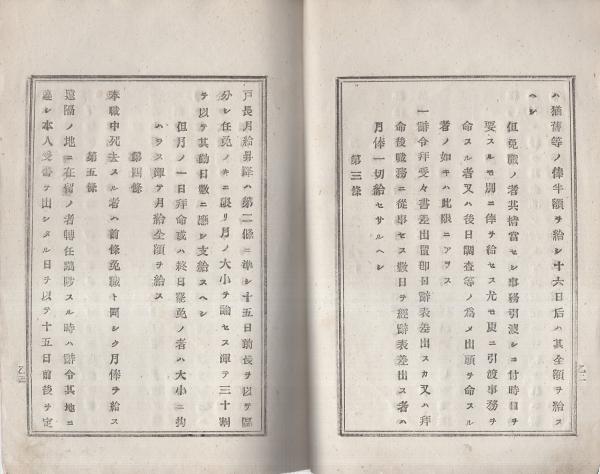 ハ猶舊等ノ俸半額ヲ給シ十六日后ハ其全額ヲ給ス
ヘシ
但免職ノ者其擔當セシ事務引渡シニ付時日ヲ
要スルモ別ニ俸ヲ給セス尤モ更ニ引渡事務ヲ
命スル者又ハ後日調査等ノ爲メ出頭ヲ命スル
者ノ如キハ此限ニアラス
一辭令拜受々書差出置卽日辭表差出スカ又ハ拜
命後職務ニ從事セス數日ヲ經辭表差出ス者ハ
月俸一切給セサルヘシ
第三條
乙二
戸長月給昇降ハ第二條ニ準シ十五日前後ヲ以テ區
分シ任免ノキニ限リ月ノ大小ヲ論セス渾テ三十割
ヲ以テ其勤日數ニ應シ支給スヘシ
但月ノ一日拜命或ハ終日罷免ノ者ハ大小ニ拘
ハラス渾テ月給全額ヲ給ス
第四條
奉職中死去スル者ハ前條免職ト同シク月俸ヲ給ス
第五條
遠隔ノ地ニ在留ノ者轉任黜陟スル時ハ辭令其地ニ
達シ本人受書ヲ出シタル日ヲ以テ十五日前後ヲ定